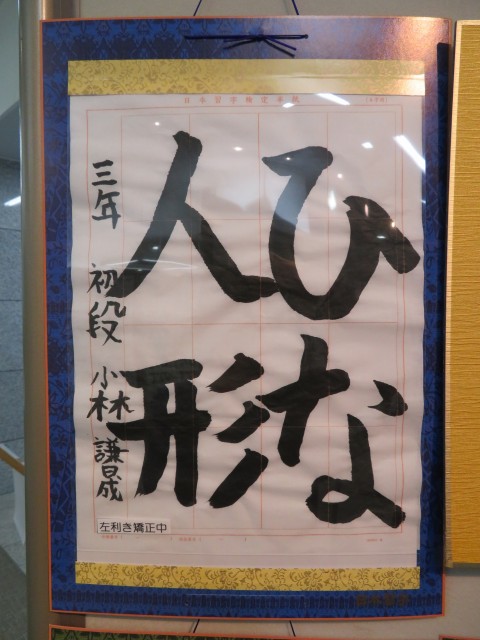 日本習字検定半紙
ひな
人形
三年 初段 小林 謙晟
左利き矯正中